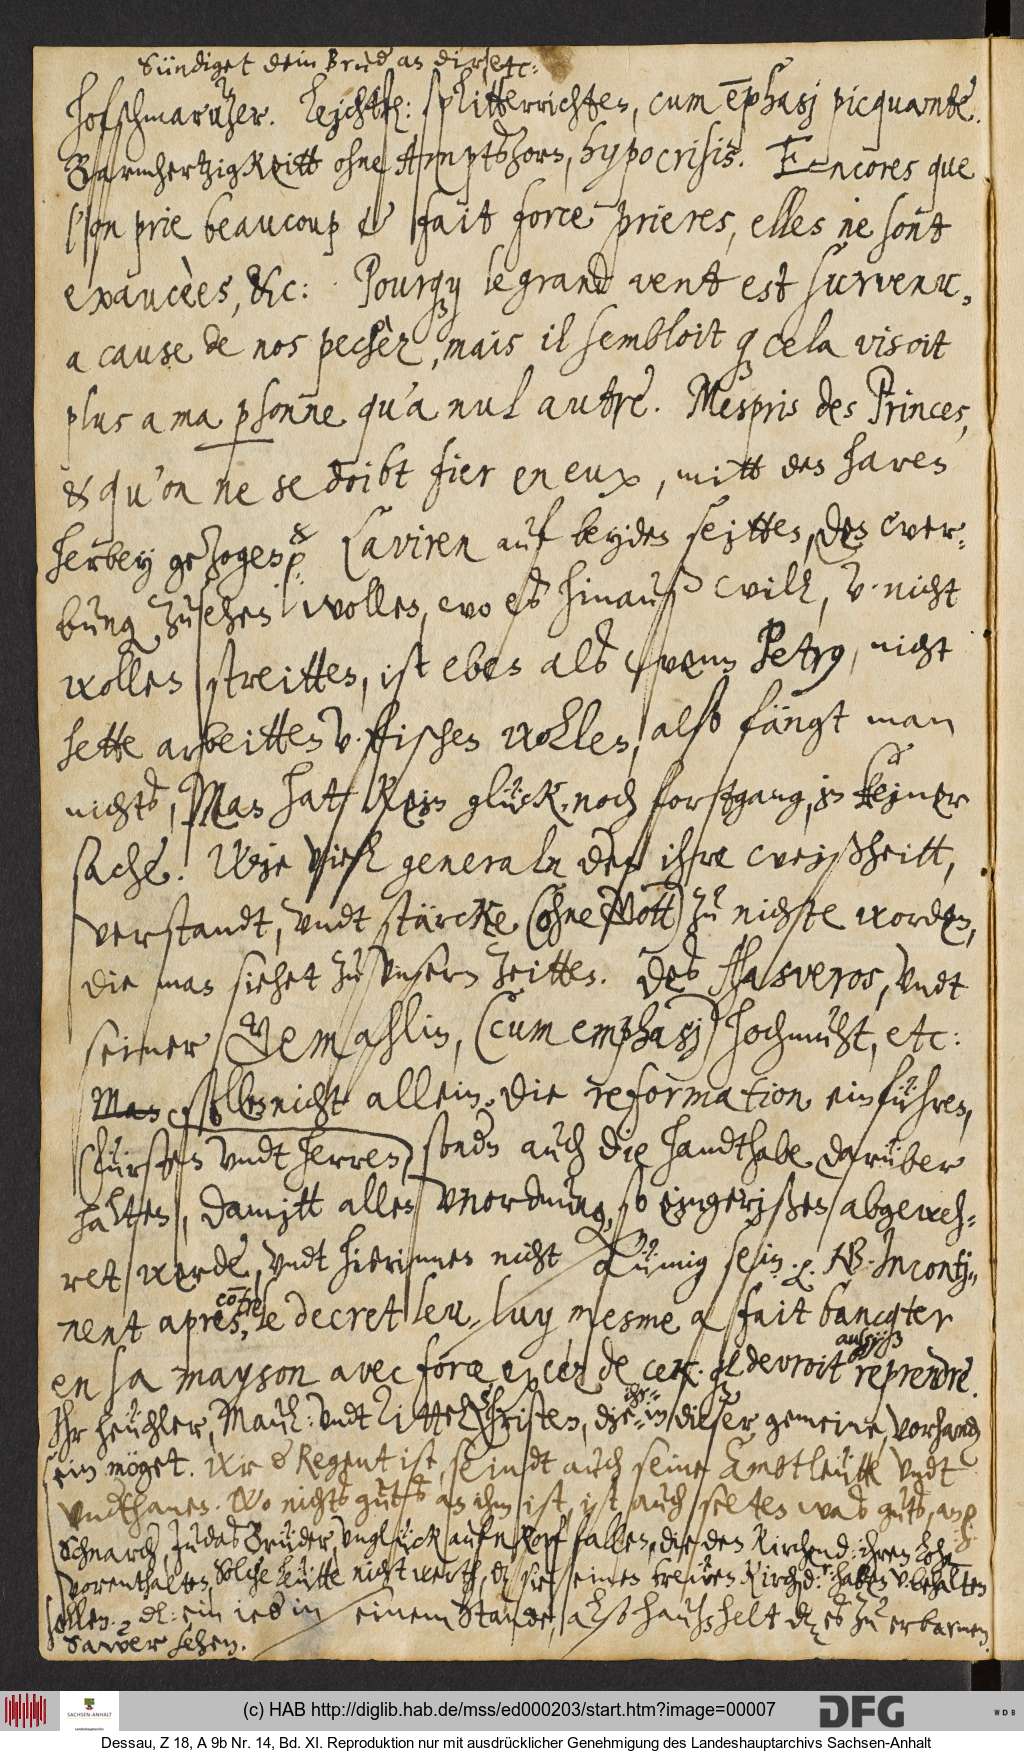 Sündiget dein Brud an dir, etc:
hofschmarutzer. Leichtfl: splitterrichten, cum emphasj picquante.
Barmhertzigkeitt ohne Amptszorn, hypocrisis. Encores que
l'on prie beaucoup & fait force prieres, elles ne sont
exaucèes, &c: Pourqy le grand vent est survenu,
a cause de nos pechèz, mais il sembloit q cela visoit
plus a ma psonne qu'a nul autre. Mespris des Princes,
& qu'on ne se doibt fier en eux, mitt den haren
herbey gezogen p Laviren auf beyden seitten, der wer-
bung zusehen wollen, wo es hinauß will, v. nicht
wollen streitten, ist eben als wenn Petrg, nicht
hette arbeitten v. fischen wollen, also fängt man
nichts, Man hat kein glück, noch fortgang, in keiner
sache. Wie viel generaln der ihre weißheitt,
verstandt, vndt stärcke (ohne Gott) zu nichte worden,
die man siehet zu vnsern zeitten. Des Hasveros, vndt
seiner Gemahlin, (cum emphasj) hochmuht, etc:
Man sollen nicht allein die reformation einführen,
(fürsten vndt herren) sondn auch die handthabe darüber
halten, damitt allen vnordnung, so eingerißen abgeweh-
ret werde, vndt hierinnen nicht säumig sein. p. NB. Inconti-
nent apres, contre le decret leu, luy mesme a fait bancqter
en sa mayson avec force excéz de cecy. Il devroit aussy reprendre.
Ihr heuchler, Maul: vndt Tittel Christen, die ihr in dieser gemeine, vorhanden
sein möget. Wie d Regent ist, seindt auch seine Amtleutte vndt
vndthanen. Wo nichts guts an ihm ist, ist auch selten was guts, an p.
Schnarch, Judas Brüder, vnglück auf n kopf fallen, die den Kirchend: ihren Lohn
vorenthalten, Solche Leutte nicht werth, dz sie einen treuen Kirchd: haben v. behalten
sollen. d: ein ied in einem Stande, also haußhelt dz es zu erbarmen.
Sawer sehen.
(c) HAB http://diglib.hab.de/mss/ed000203/start.htm?image=00007
SACHSEN-ANHALT
DFG
WDB
Dessau, Z 18, A 9b Nr. 14, Bd. XI. Reproduktion nur mit ausdrücklicher Genehmigung des Landeshauptarchivs Sachsen-Anhalt